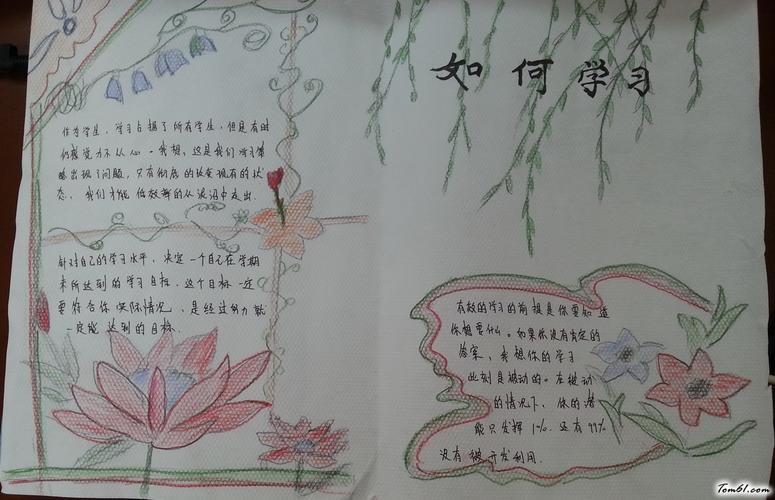 如何学习
作为学生，学习占据了所有学生，但是有时
仍感觉力不从心。我想，这是我们学习策
略出现了问题，只有彻底的改变现有的状
态，我们才能 的从泥沼中走出.
针对自己的学习水平，决定一个自己在学期
末所达到的学习目标，这个目标一定
要符合你实际情况、是经过努力就
一定能达到的目标、
有效的学习的前提是你要知道
你想要什么。如果你没有肯定的
答案，我想你的学习
此刻是被动的。在被动
的情况下、你的潜
能只发挥1%.还有99%
没有被开发利用.
Tom61.com